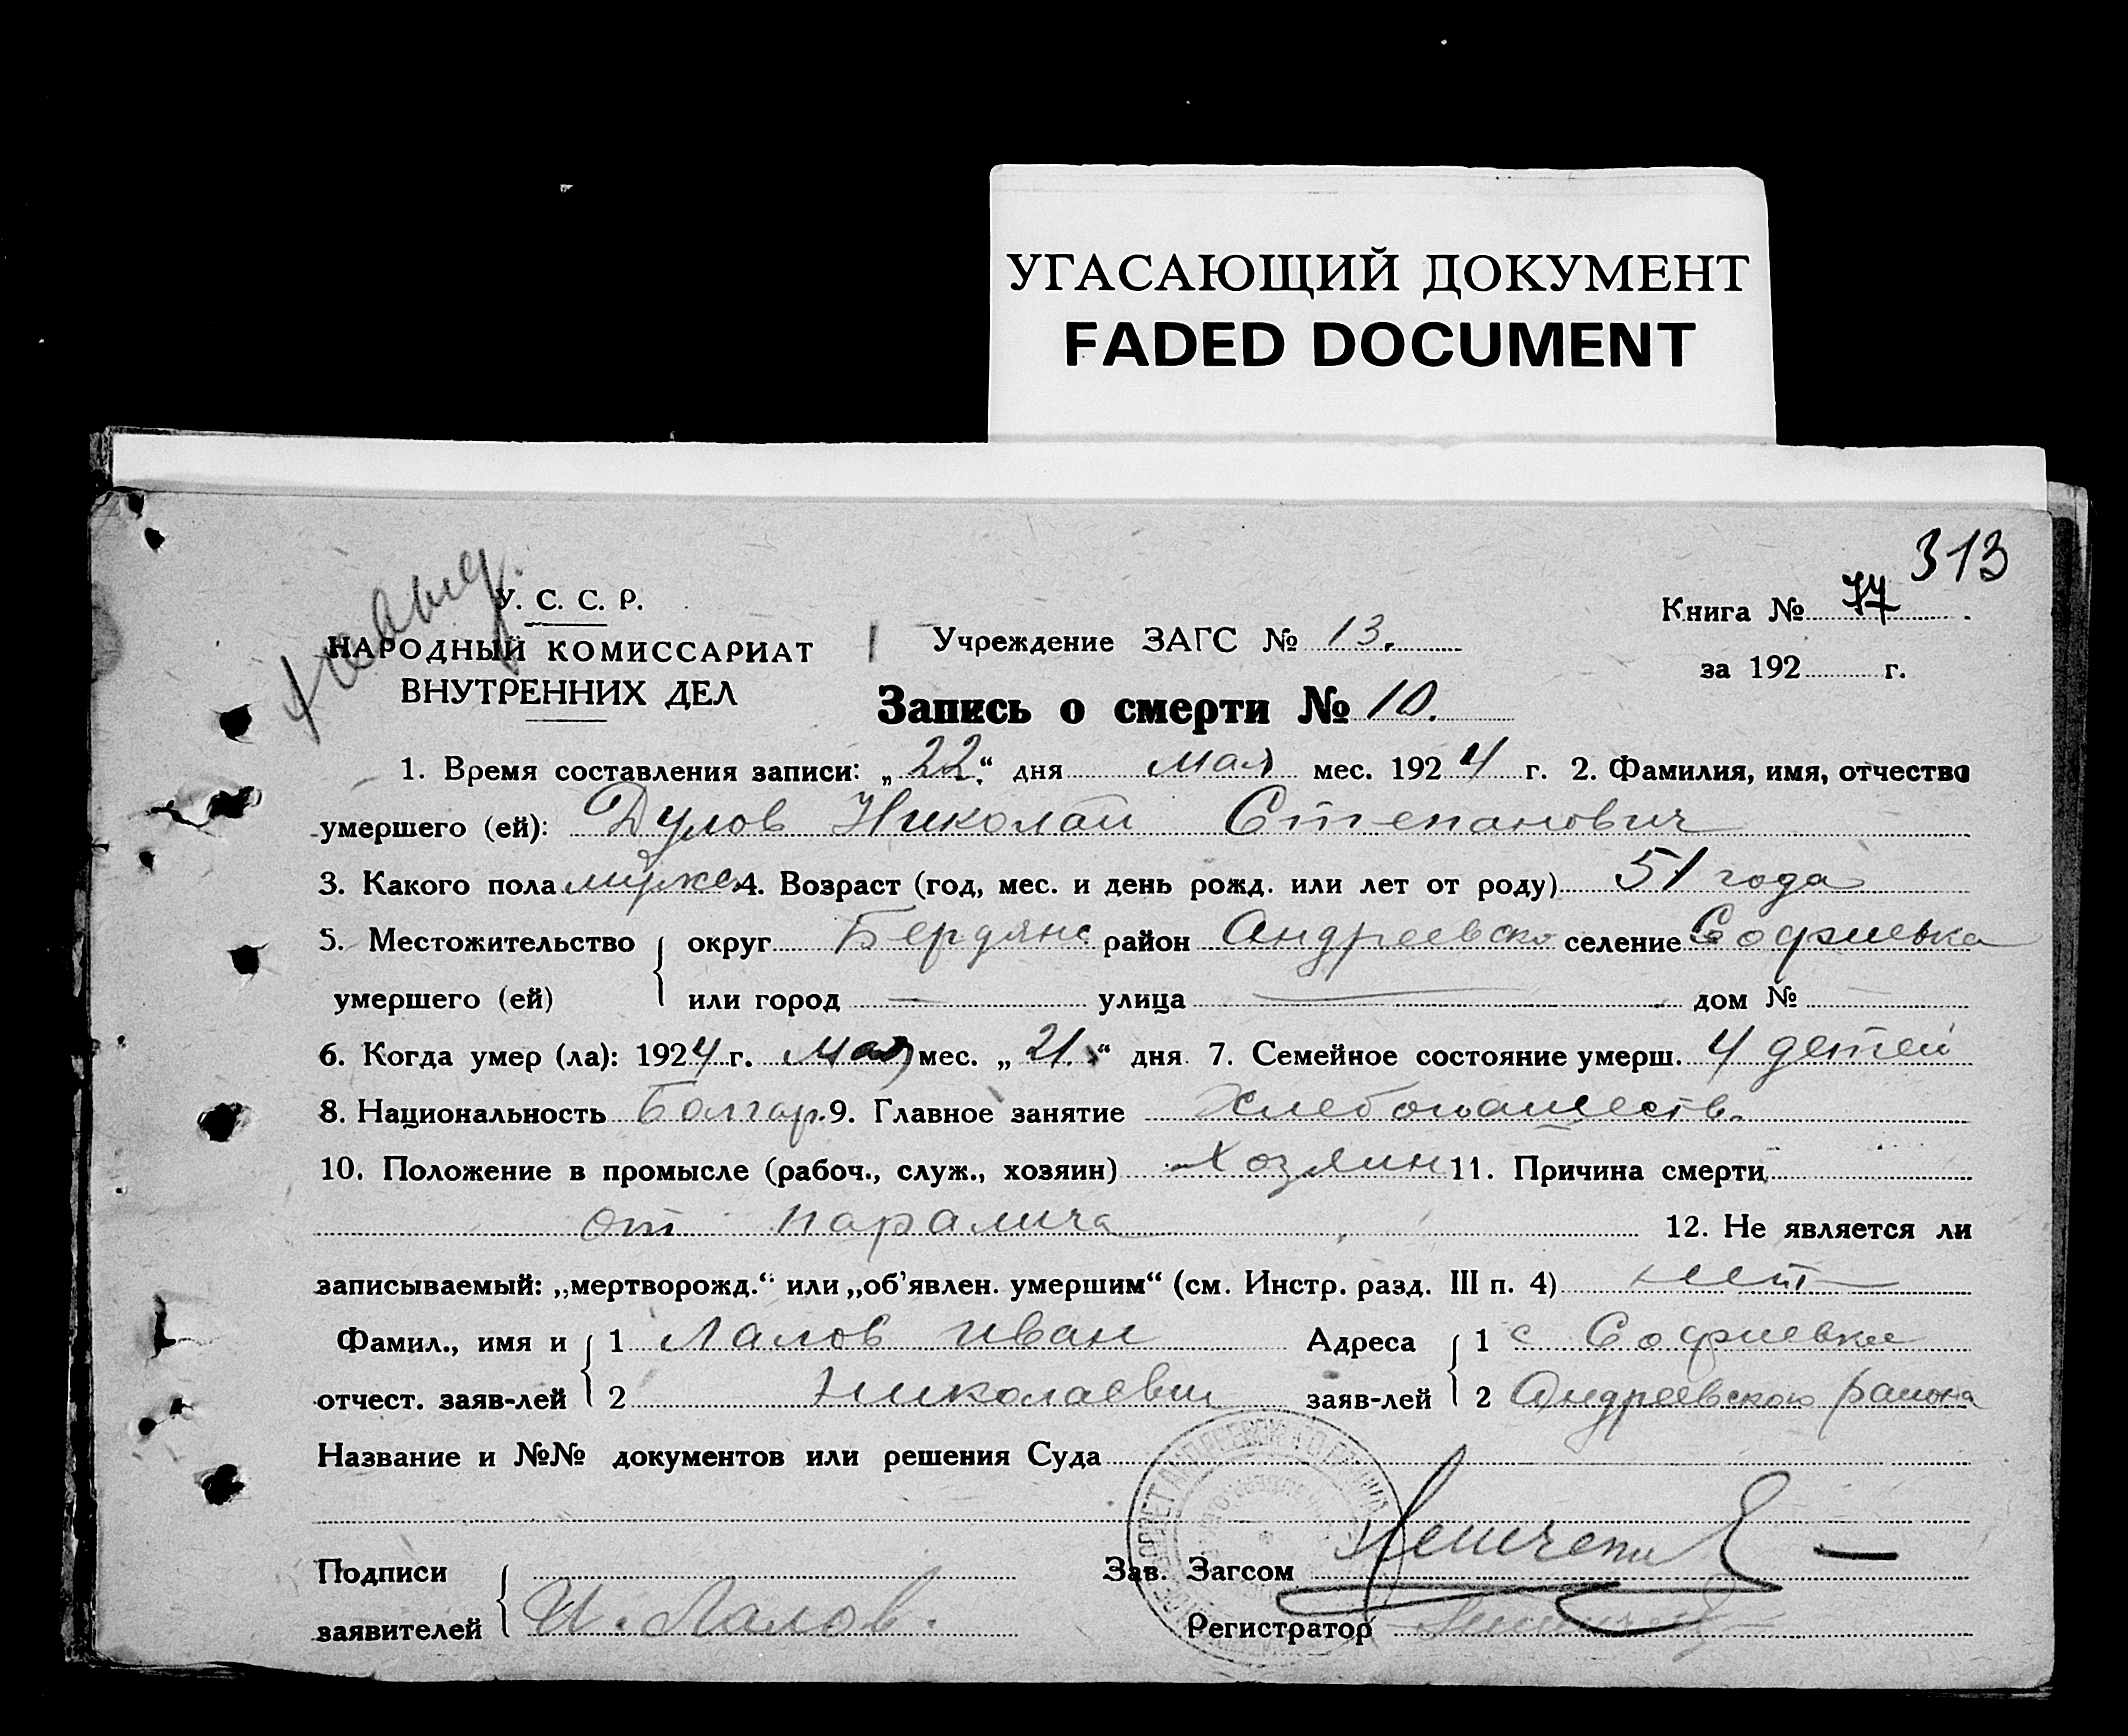 УГАСАЮЩИЙ ДОКУМЕНТ
FADED DOCUMENT
313
У. С. С. Р.
НАРОДНЫЙ КОМИССАРИАТ
ВНУТРЕННИХ ДЕЛ
Учреждение ЗАГС № 13.
Книга № 77
за 192 г.
Запись о смерти № 10.
1. Время составления записи: „22“ дня мая мес. 1924 г. 2. Фамилия, имя, отчество
умершего (ей): Дулов Николай Степанович
3. Какого пола мужс. 4. Возраст (год, мес. и день рожд. или лет от роду) 51 года
5. Местожительство округ Бердянс. район Андреевско селение Софиевка
умершего (ей) или город — улица — дом №
6. Когда умер (ла): 1924 г. мая мес. „21“ дня 7. Семейное состояние умерш. 4 детей
8. Национальность Болгар. 9. Главное занятие Хлебопашеств.
10. Положение в промысле (рабоч., служ., хозяин) Хозяин 11. Причина смерти
от паралича 12. Не является ли
записываемый: „мертворожд.“ или „об’явлен. умершим“ (см. Инстр. разд. III п. 4) нет
Фамил., имя и 1 Лалов Иван Адреса 1 с Софиевка
отчест. заяв-лей 2 Николаевич заяв-лей 2 Андреевского района
Название и №№ документов или решения Суда
Подписи Зав. Загсом
заявителей И. Лалов. Регистратор